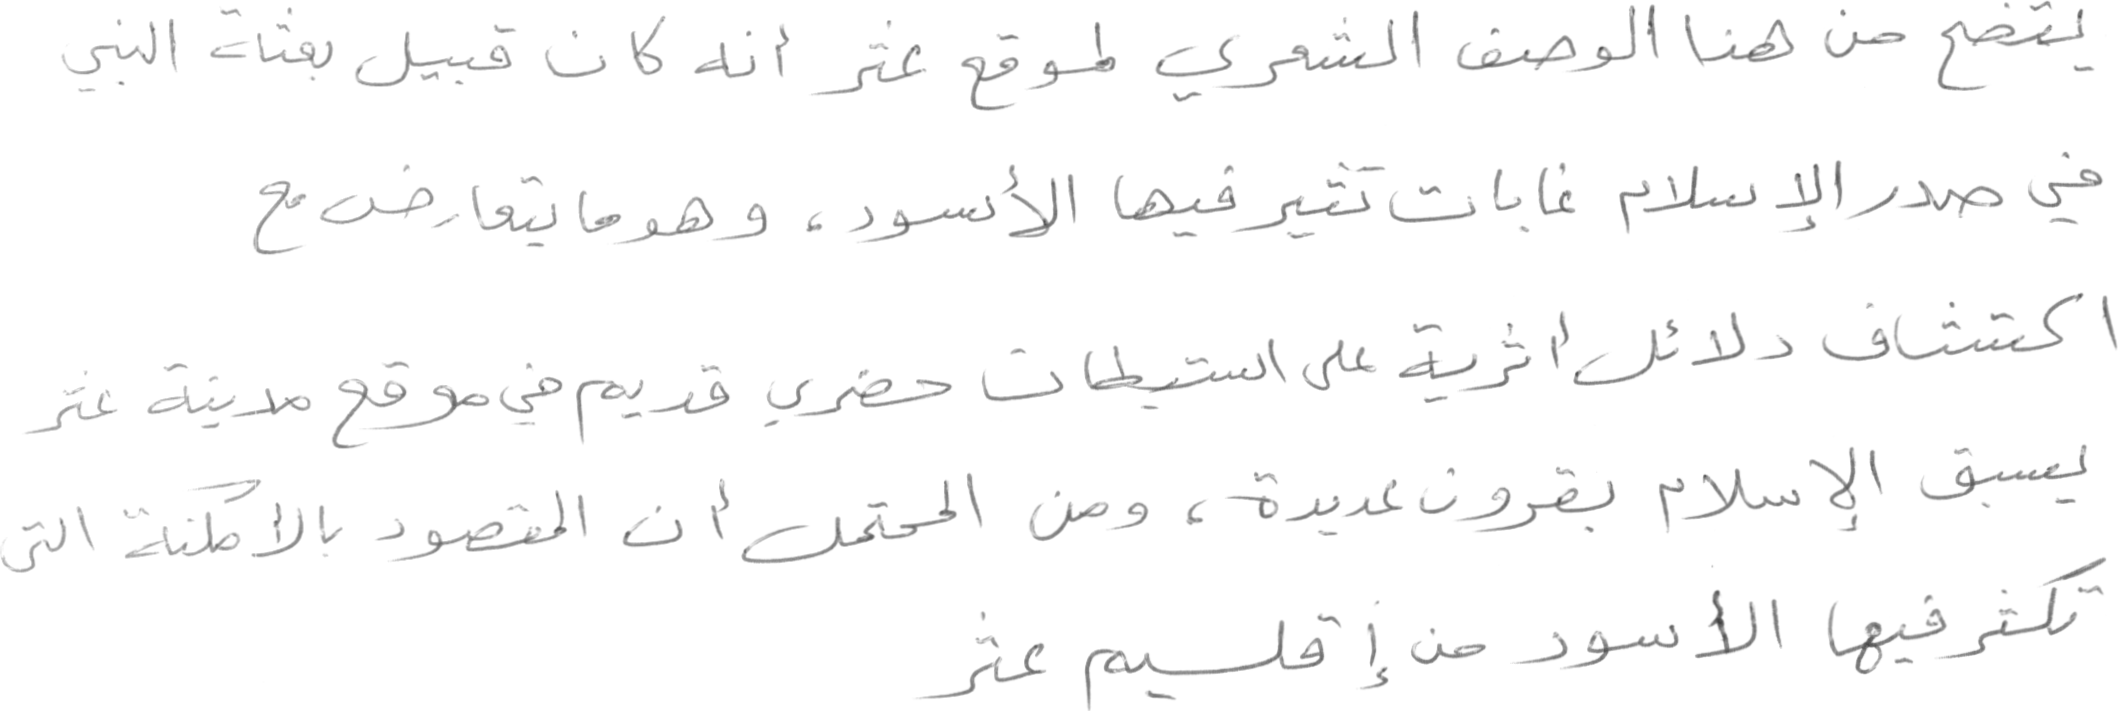 يتضح من هنا الوصف الشعري لموقع عثر أنه كان قبيل بعثة النبي
في صدر الإسلام غابات تثير فيها الأسود، وهو ما يتعارض مع
اكتشاف دلائل أثرية على استيطان حضري قديم في موقع مدينة عثر
يسبق الإسلام بقرون عديدة، ومن المحتمل أن المقصود بالأمكنة التي
تكثر فيها الأسود من إقليم عثر